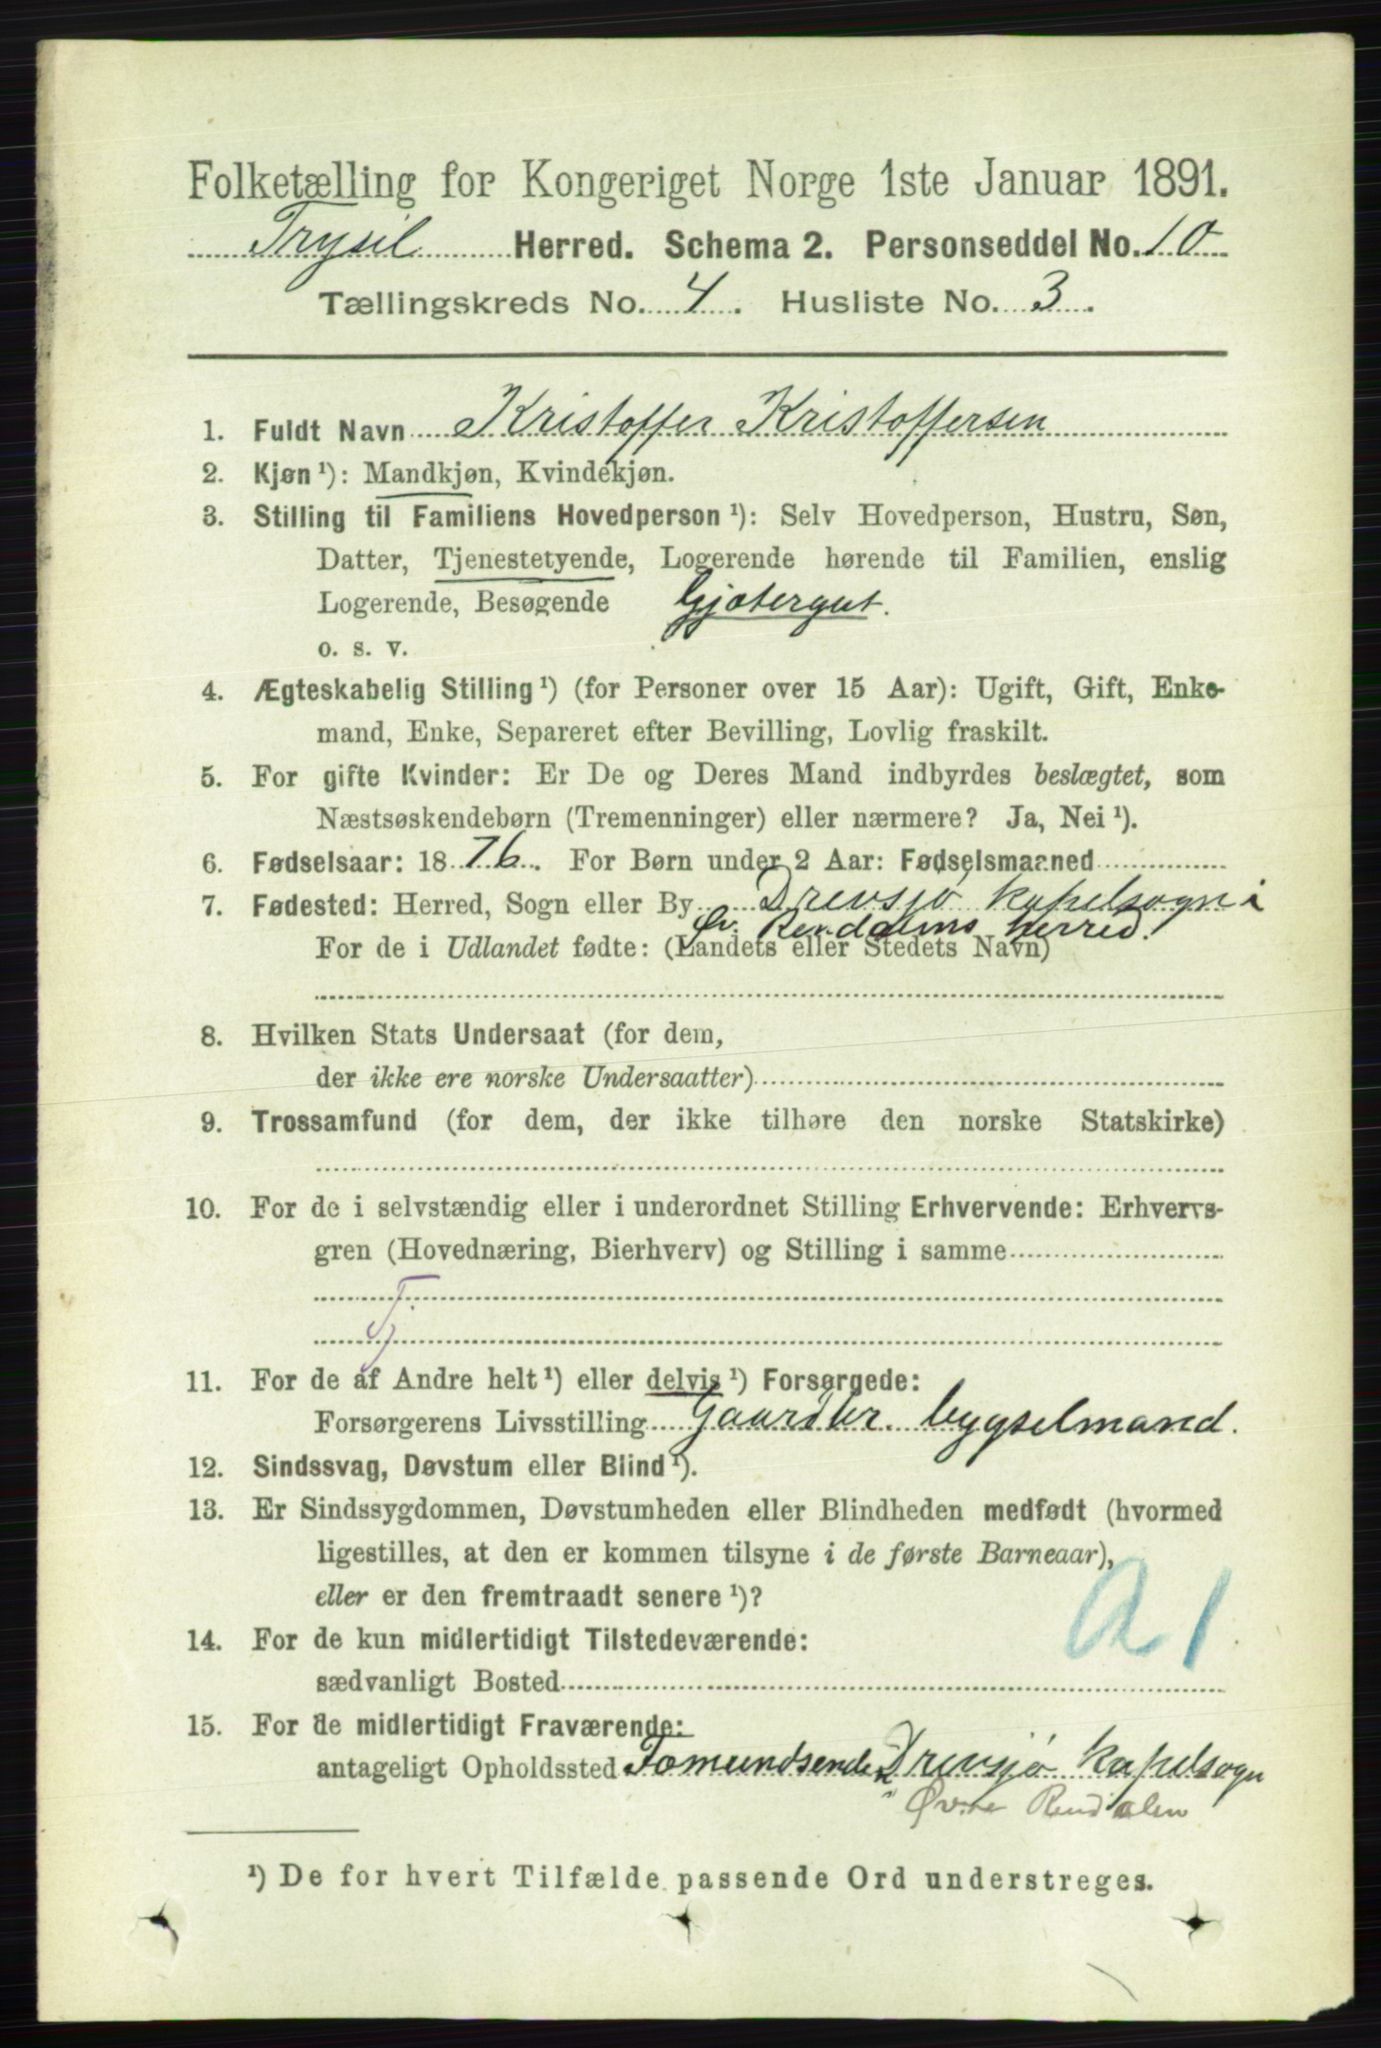 Folketælling for Kongeriget Norge 1ste Januar 1891.
Trysil Herred. Schema 2. Personseddel No. 10
Tællingskreds No. 4. Husliste No. 3.
1. Fuldt Navn Kristoffer Kristoffersen
2. Kjøn ¹): Mandkjøn, Kvindekjøn.
3. Stilling til Familiens Hovedperson ¹): Selv Hovedperson, Hustru, Søn,
Datter, Tjenestetyende, Logerende hørende til Familien, enslig
Logerende, Besøgende Gjætergut.
o. s. v.
4. Ægteskabelig Stilling ¹) (for Personer over 15 Aar): Ugift, Gift, Enke-
mand, Enke, Separeret efter Bevilling, Lovlig fraskilt.
5. For gifte Kvinder: Er De og Deres Mand indbyrdes beslægtet, som
Næstsøskendebørn (Tremenninger) eller nærmere? Ja, Nei ¹).
6. Fødselsaar: 1876. For Børn under 2 Aar: Fødselsmaaned
7. Fødested: Herred, Sogn eller By Drevsjø kapelsogn i
Øv. Rendalens herred.
For de i Udlandet fødte: (Landets eller Stedets Navn)
8. Hvilken Stats Undersaat (for dem,
der ikke ere norske Undersaatter)
9. Trossamfund (for dem, der ikke tilhøre den norske Statskirke)
10. For de i selvstændig eller i underordnet Stilling Erhvervende: Erhvervs-
gren (Hovednæring, Bierhverv) og Stilling i samme
Tj.
11. For de af Andre helt ¹) eller delvis ¹) Forsørgede:
Forsørgerens Livsstilling Gaardbr. bygselmand.
12. Sindssvag, Døvstum eller Blind ¹).
13. Er Sindssygdommen, Døvstumheden eller Blindheden medfødt (hvormed
ligestilles, at den er kommen tilsyne i de første Barneaar),
eller er den fremtraadt senere ¹)?
A 1
14. For de kun midlertidigt Tilstedeværende:
sædvanligt Bosted
15. For de midlertidigt Fraværende:
antageligt Opholdssted Fæmundsenden Drevsjø kapelsogn
Øvre Rendalen
¹) De for hvert Tilfælde passende Ord understreges.